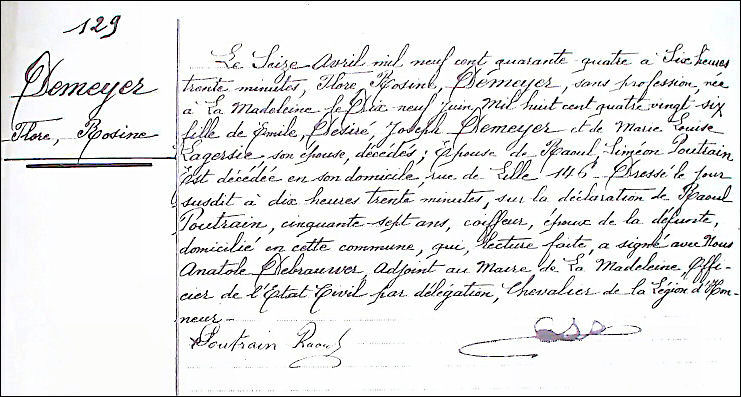 129
Demeyer
Flore, Rosine
Le Seize Avril mil neuf cent quarante quatre à Six heures
trente minutes, Flore, Rosine, Demeyer, sans profession, née
à La Madeleine le Dix neuf Juin, Mil huit cent quatre vingt-six
fille de Emile, Désiré, Joseph Demeyer et de Marie Louise
Lagersie son épouse, décédés; Epouse de Raoul Siméon Poutrain
Est décédée en son domicile, rue de Lille 146 - Dressé le jour
susdit à dix heures trente minutes, sur la déclaration de Raoul
Poutrain, cinquante sept ans, coiffeur, époux de la défunte,
domicilié en cette commune, qui, lecture faite, a signé avec Nous
Anatole Debrauwer, Adjoint au Maire de La Madeleine, Offi-
cier de l'Etat Civil par délégation, Chevalier de la Légion d'Hon-
neur -
Poutrain Raoul